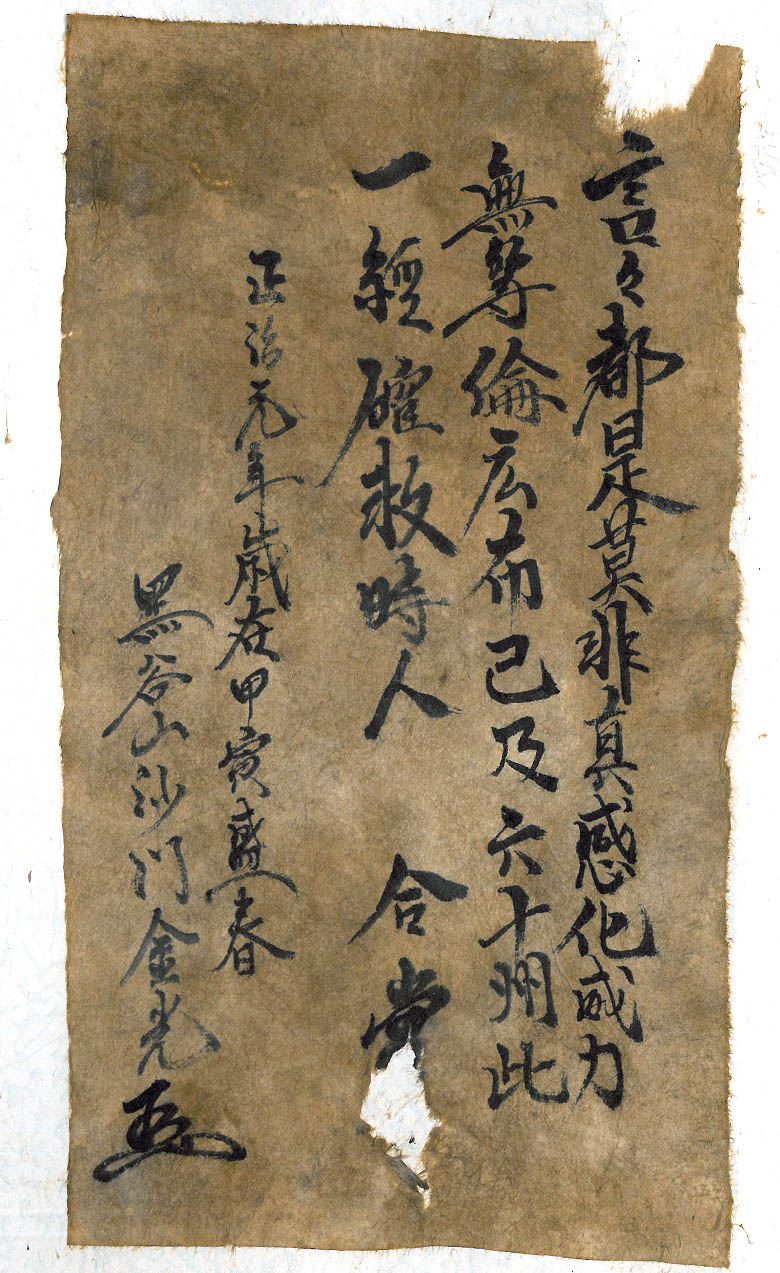 言々都是莫非真感化威力
無等倫広布已及六十州此
一経確救時人 合掌
正治元年歳在甲寅盛春
黒谷山沙门金光